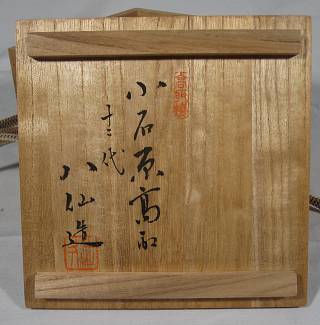 小石原高取
十三代
八仙造